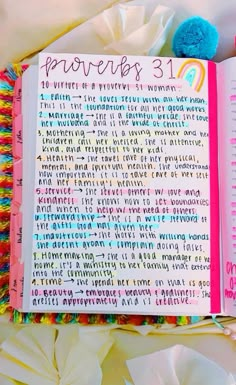 proverbs 31
10 virtues of a proverbs 31 woman
1. Faith → she loves Jesus with all her
heart. This is the foundation for all others.
2. Marriage → she is a faithful bride, owns
her husband and is the bride of Christ.
3. Mothering → she is a loving mother and
children call her blessed. She is attentive,
kind, and resourceful to her kids.
4. Health → she takes care of her physical,
mental, and spiritual health. She understands
how important it is to take care of her self
and her family's health.
5. Service → she serves others w/ love and
kindness. She knows how to set boundaries
and when to help w/ the need of others.
6. Stewardship → she is a wise spender of
the gifts God has given her.
7. Industrious → she works with willing hands
she doesn't groan & complain doing tasks.
8. Homemaking → she is a good manager of her
home. It's a ministry to her family that extends
into the community.
9. Time → she spends her time on what is good
10. Beauty → embodies beauty & goodliness. She
dresses appropriately and is creative.